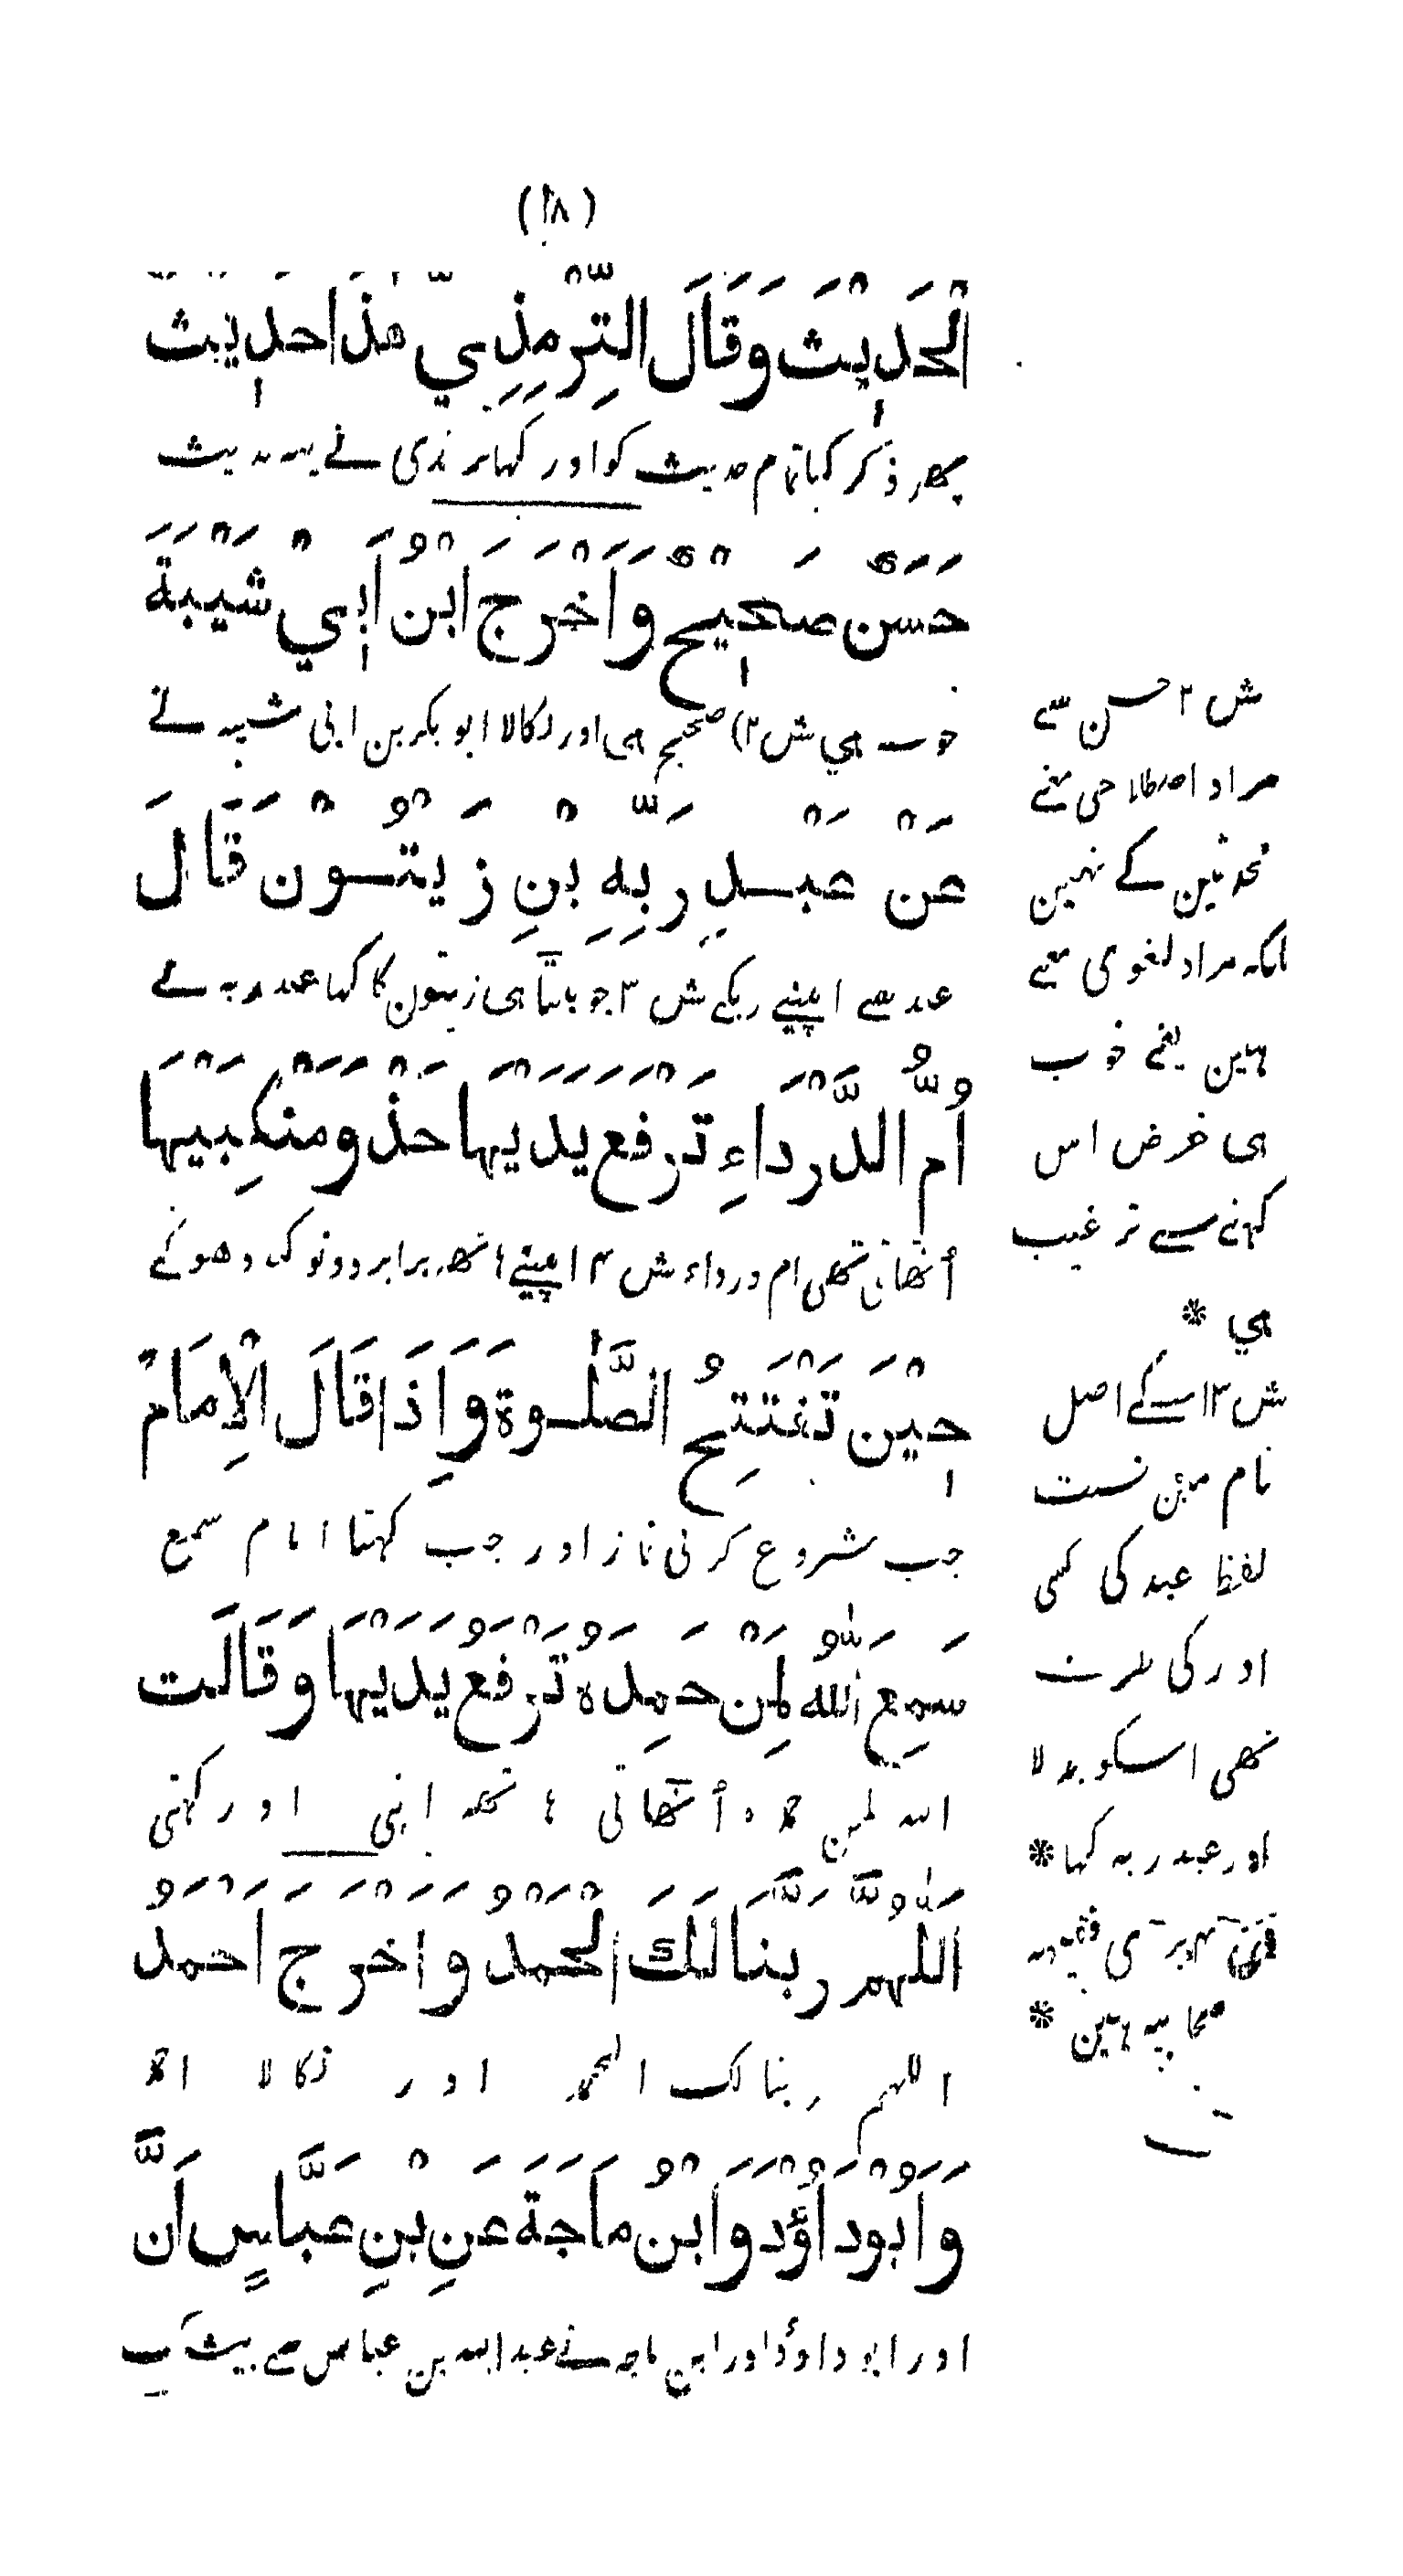 (۱۸)
الْحَدِيْثَ وَقَالَ التِّرْمِذِيّ هٰذَا حَدِيْثٌ
پھر ذکر کیا تمام حدیث کو اور کہا ترمذی نے یہہ حدیث
حَسَنٌ صَحِيْحٌ وَاَخْرَجَ ابْنُ اَبِيْ شَيْبَةَ
خوب هي ش ۲) صحیح ہی اور نکالا ابو بکر بن ابی شیبہ نے
عَنْ عَبْدِ رَبِّهِ بْنِ زَيْتُوْنَ قَالَ
عبد سے اپنے ربکے ش ۳ جو بیٹا ہی زیتون کا کہا عبد ربہ نے
اُمُّ الدَّرْدَاءِ تَرْفَعُ يَدَيْهَا حَذْوَ مَنْكِبَيْهَا
اُٹھاتی تھی ام درداء ش ۴ اپنے ہاتھہ برابر دونو کندھو کے
حِيْنَ تَفْتَتِحُ الصَّلٰوةَ وَاِذَا قَالَ الْاِمَامُ
جب شروع کرتی نماز اور جب کہتا امام سمع
سَمِعَ اللّٰهُ لِمَنْ حَمِدَهُ تَرْفَعُ يَدَيْهَا وَقَالَت
اللہ لمن حمدہ اُٹھاتی ہاتھہ اپنی اور کہتی
اَللّٰهُمَّ رَبَّنَا لَكَ الْحَمْدُ وَاَخْرَجَ اَحْمَدُ
اللہم ربنا لک الحمد اور نکالا احمد
وَاَبُوْدَاوُدَ وَابْنُ مَاجَةَ عَنِ بْنِ عَبَّاسٍ اَنَّ
اور ابو داوُد اور ابن ماجہ نے عبد اللہ بن عباس سے بیشک
ش ۲ حسن سے
مراد اصطلاحی معنے
محدثین کے نہین
بلکہ مراد لغوی معنے
ہین یعنے خوب
ہی غرض اس
کہنے سے ترغیب
هي *
ش ۳ اسکے اصل
نام مین نسبت
لفظ عبد کی کسی
اور کی طرف
تھی اسکو بدلا
اور عبد ربہ کہا *
صحابیہ ہین *